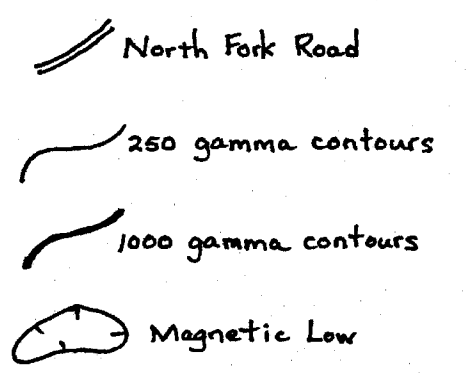 North Fork Road
250 gamma contours
1000 gamma contours
Magnetic Low